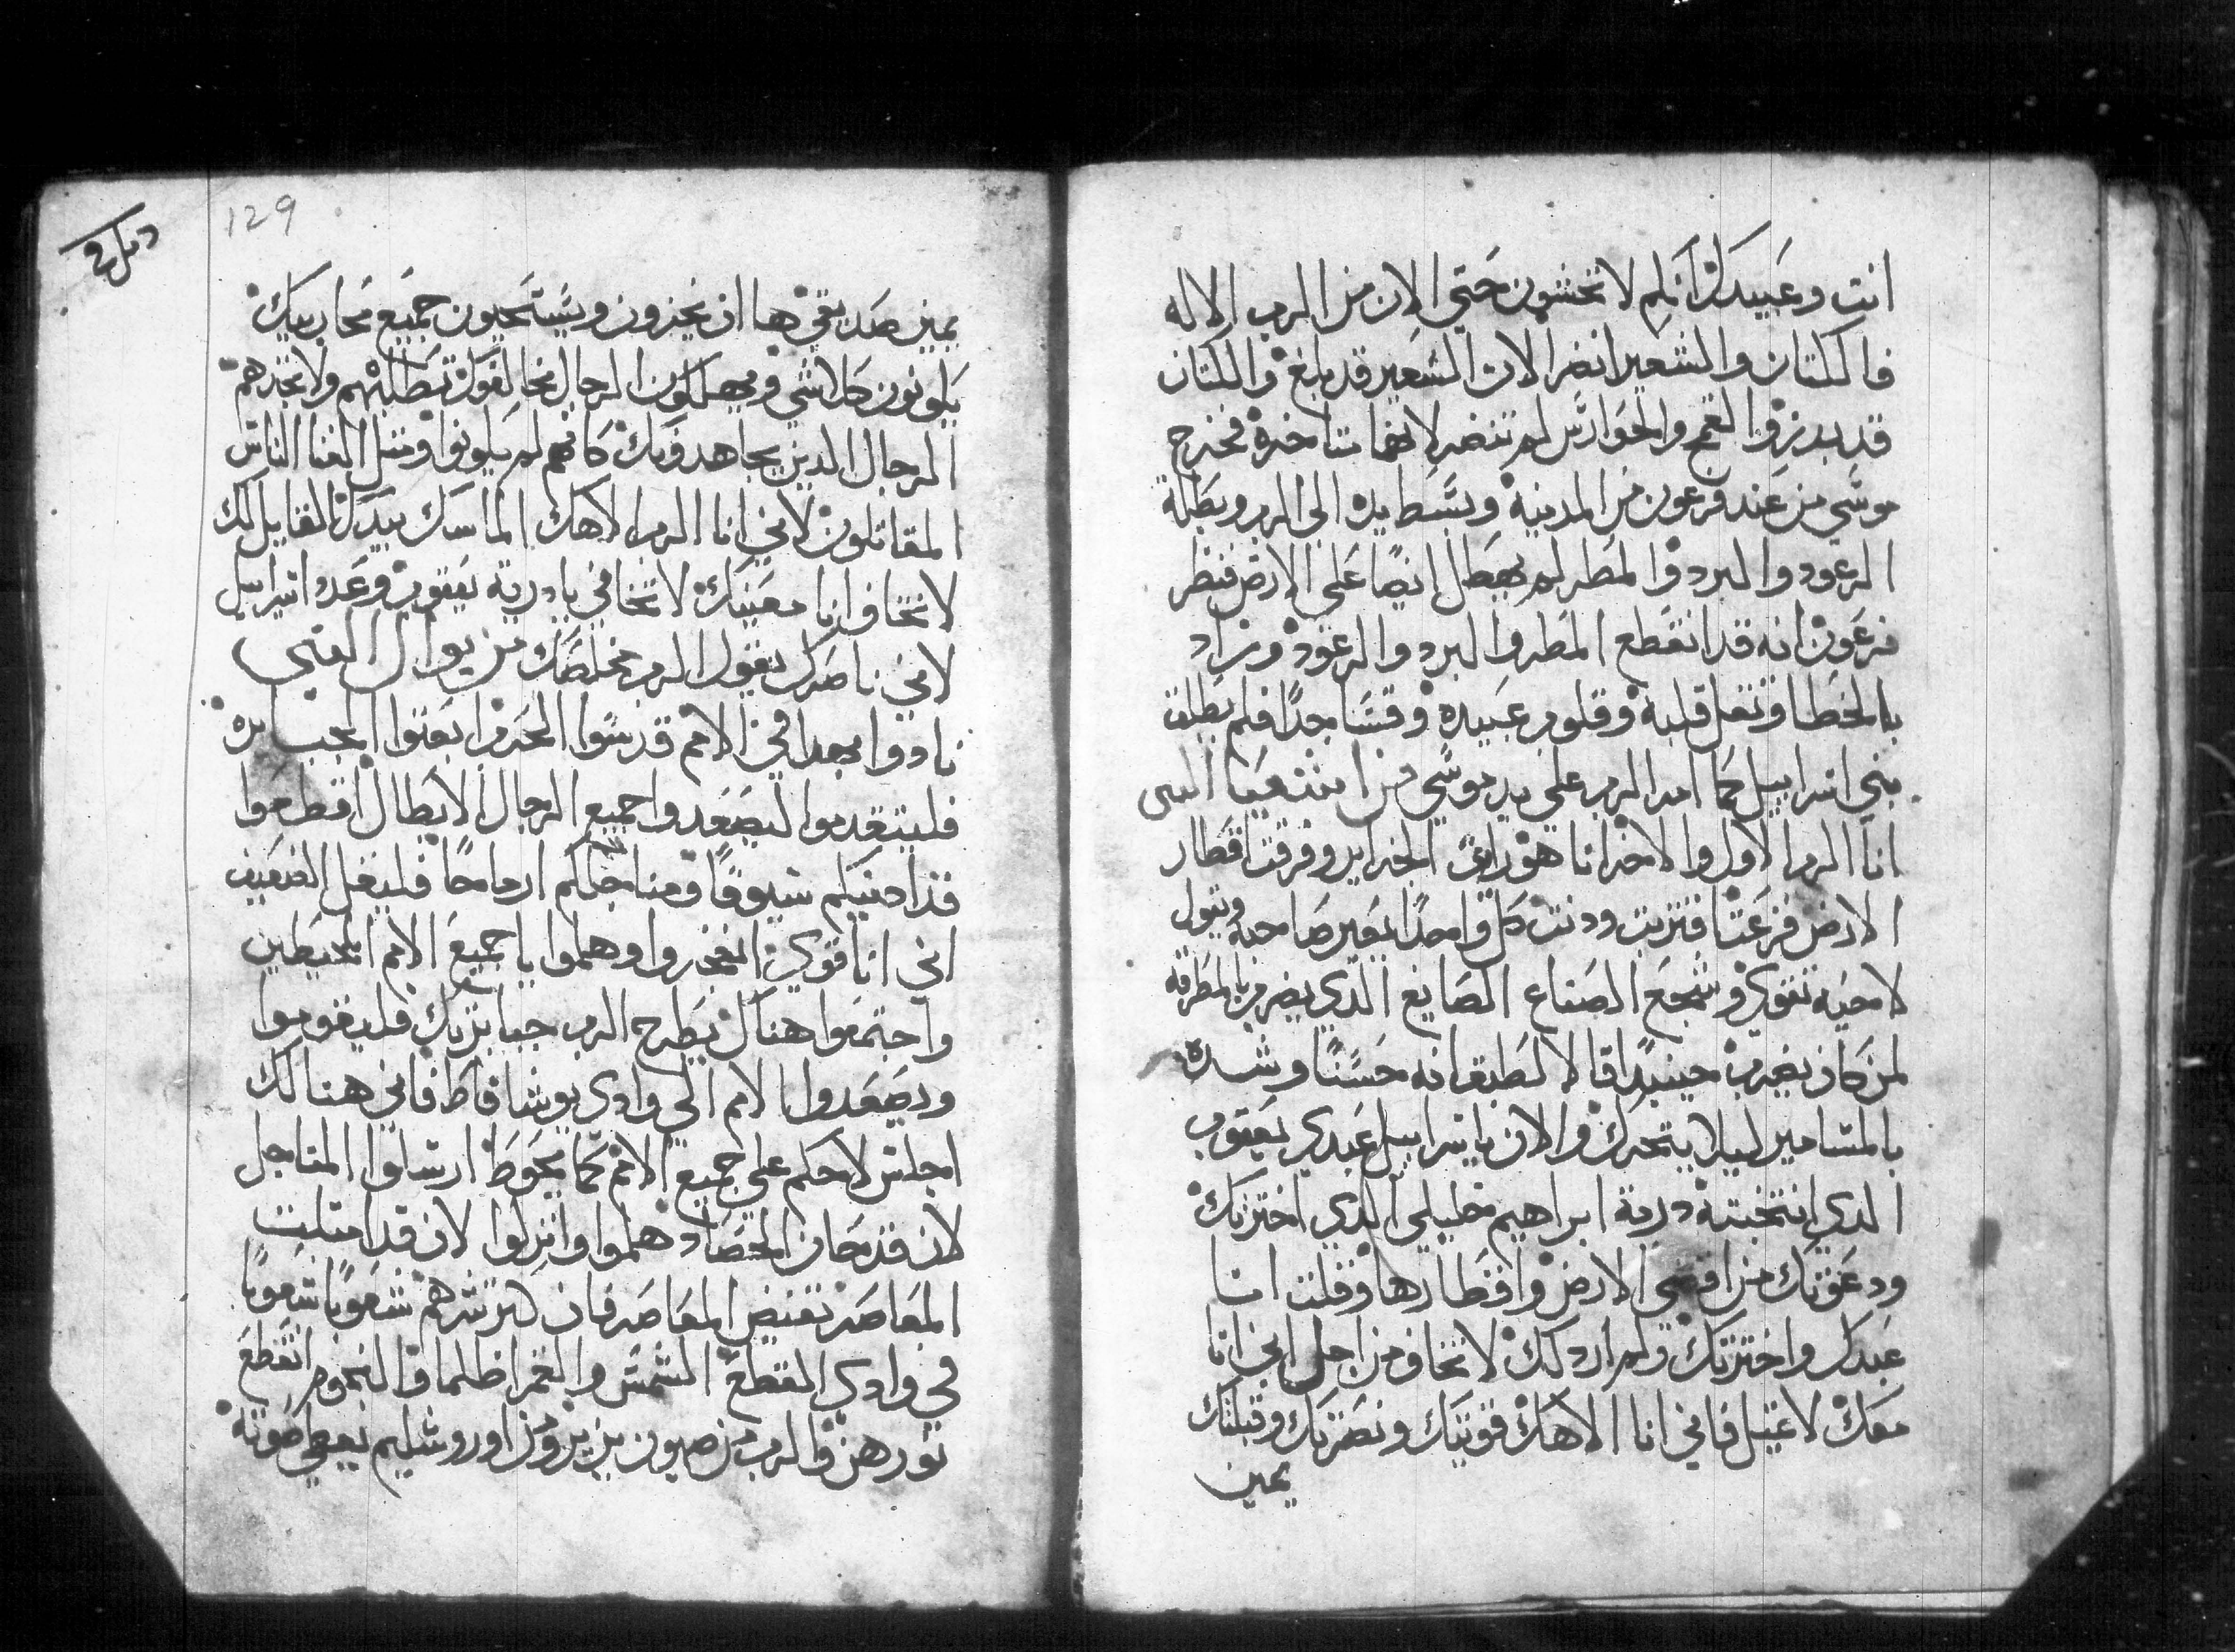 انت وعبيدك انكم لا تخشون حتي الان من الرب الاله
فالكتان والشعير انضر الان الشعير قد بلغ والكتان
قد بدرز والقمح والحوارس لم تنضر لانهما متاخرة فخرج
موسي من عند فرعون من المدينة وبسط يده الي الرب وبطلة
الرعود والبرد والمطر لم يهطل ايضا علي الارض فنظر
فرعون انه قد انقطع المطر والبرد والرعود وزاد
بالخطا وثقل قلبه وقلوب عبيده وقسا جدا فلم يطلق
بني اسراييل كما امر الرب علي يد موسي من اشعيا النبي
انا الرب الاول والاخر انا هو رات الجزاير وفرقت اقطار
الارض فزعتا فتزبت ودنت كل واحدا يعير صاحبه ويقول
لاخيه تقوي وشجع الصناع الصايغ الدي يضرب بالمطرقة
لمن كان يضرب حينيدا قالا لطبق انه حسنا وشده
بالمسامير ليلا يتحرك والان يا اسراييل عبدي يعقوب
الدي انتخبته درية ابراهيم خليلي الدي اخترتك
ودعوتك من اقصي الارض واقطارها وقلت انا
عبدك واخترتك ولم اردلك لا تخاف من اجل اني انا
معك لا تميل فاني انا الاهك قويتك ونصرتك وقبلتك
يمين
129
يمين صديقي ها ان يخزون ويستحيون جميع محاربيك
يكونون كلا شي ويهلكون الرجال مخالفوك تطلبهم ولا تجدهم
الرجال الدين يجاهدونك كانهم لم يكونوا ومثل الفنا الناس
المقاتلون لاني انا الرب الاهك الماسك بيدك القايل لك
لا تخاف انا معينك لا تخافي يا درية يعقوب وعدد اسراييل
لاني ناصرك يقول الرب مخلصك من يوال النبي
نادوا بهدا في الامم قدسوا الحرب ابعثوا الجبابرة
فليتقدموا ليصعدوا جميع الرجال الابطال اقطعوا
فدادينكم سيوفا ومناجلكم ارماحا فليقل الضعيف
اني انا قوي انفخروا وهلموا يا جميع الامم المحيطين
واجتمعوا هناك يطرح الرب جبابرتك فليقوموا
ويصعدوا الامم الي وادي يوشافاط فاني هنالك
اجلس لاحكم علي جميع الامم كما يحوط ارسلوا المناجل
لان قد حان الحصاد هلموا وانزلوا لان قد امتلت
المعاصر تفيض المعاصر فان كثر شرهم شعوبا شعوبا
في وادي القطع الشمس والقمر اظلما والنجوم انقطع
نورهن والرب من صهيون يزيز ومن اوروشليم يعطي صوته